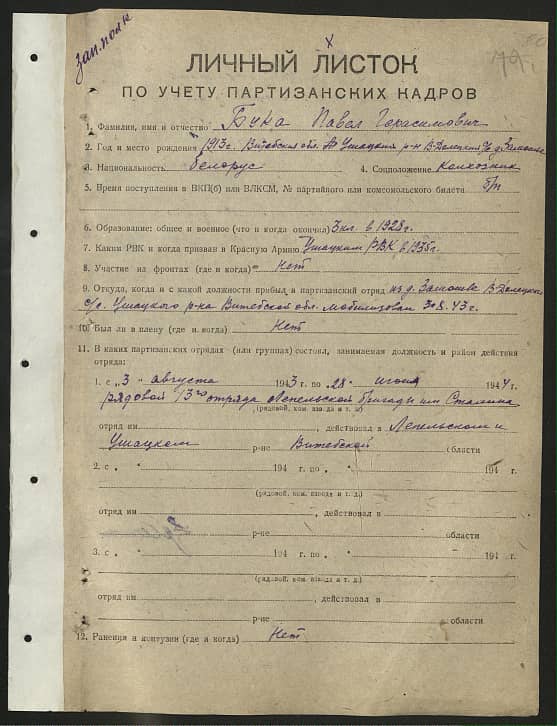 зап. полк
х
79.
ЛИЧНЫЙ ЛИСТОК
ПО УЧЕТУ ПАРТИЗАНСКИХ КАДРОВ
1. Фамилия, имя и отчество Бука Павел Герасимович
2. Год и место рождения 1913 г. Витебская обл. Ушацкий р-н В-Долецкий с/с д. Замошье
3. Национальность белорус 4. Соцположение Колхозник
5. Время поступления в ВКП(б) или ВЛКСМ, № партийного или комсомольского билета б/п
6. Образование: общее и военное (что и когда окончил) 3 кл. в 1928 г.
7. Каким РВК и когда призван в Красную Армию Ушацким РВК в 1935 г.
8. Участие на фронтах (где и когда) нет
9. Откуда, когда и с какой должности прибыл в партизанский отряд из д. Замошье В-Долецкого
с/с. Ушацкого р-на Витебской обл. мобилизован 3 о 8. 43 г.
10. Был ли в плену (где и когда) Нет
11. В каких партизанских отрядах (или группах) состоял, занимаемая должность и район действия
отряда:
1. с „3" августа 1943 г. по „28" июня 1944 г.
рядовой 13го отряда Лепельской бригады им Сталина
(рядовой, ком. взвода и т. д.)
отряд им , действовал в Лепельском и
Ушацком р-не Витебской области
2. с „ " 194 г. по „ " 194 г.
(рядовой, ком. взвода и т. д.)
отряд им , действовал в
р-не области
3. с „ " 194 г. по „ " 194 г.
(рядовой, ком. взвода и т. д.)
отряд им , действовал в
р-не области
12. Ранения и контузии (где и когда) Нет